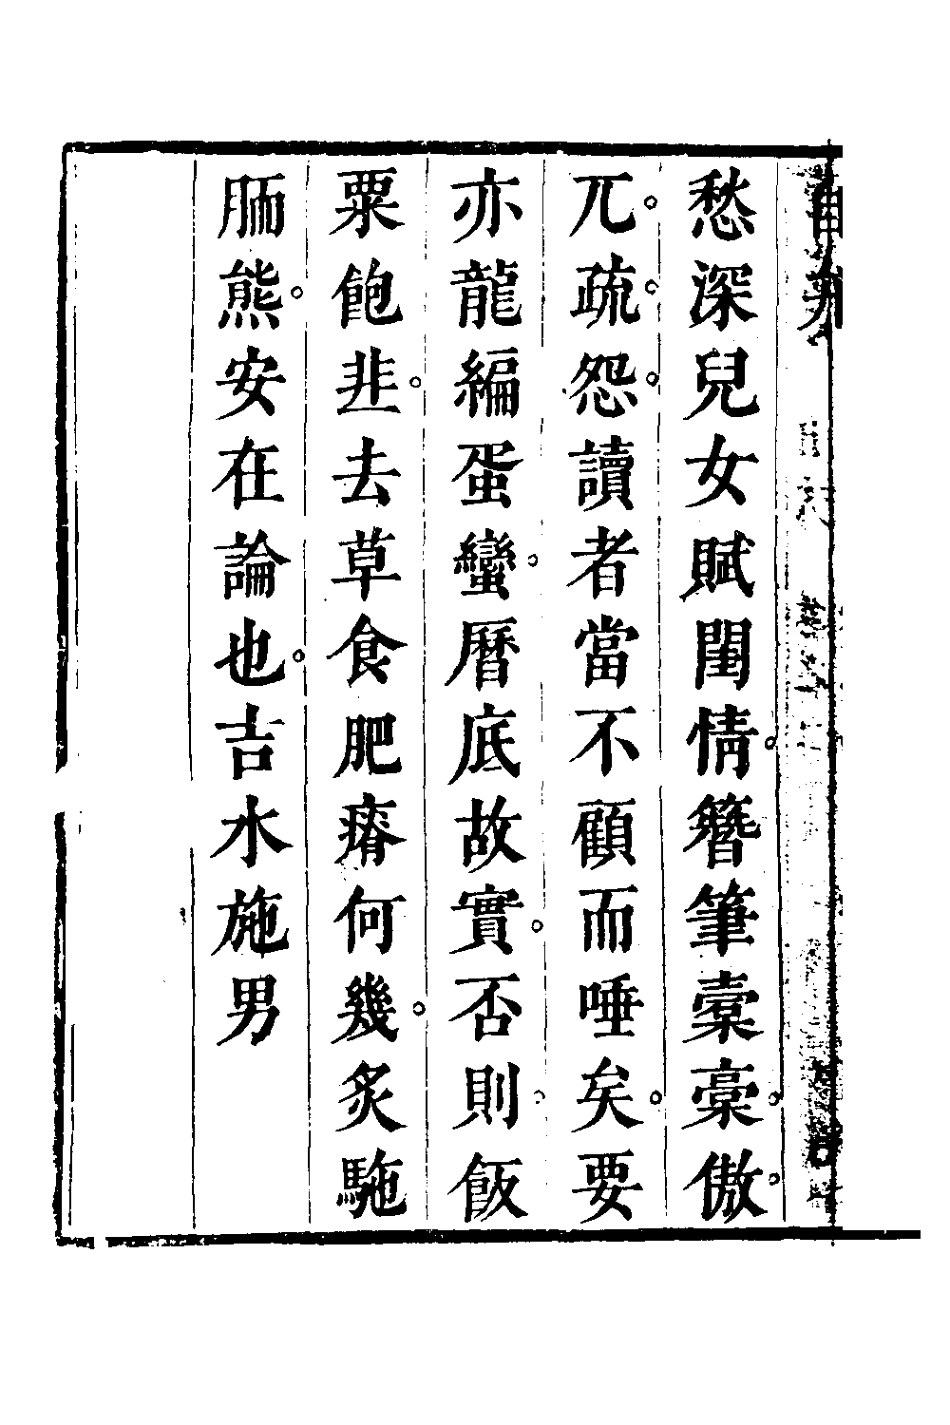 愁深兒女賦閨情。簪筆槖槀。傲。
兀。疏。怨。讀者當不顧而唾矣。要
亦龍編蛋蠻。曆底故實。否則。飯
粟飽韭。去草食肥瘠何幾。炙駞
胹熊。安在論也。吉水施男